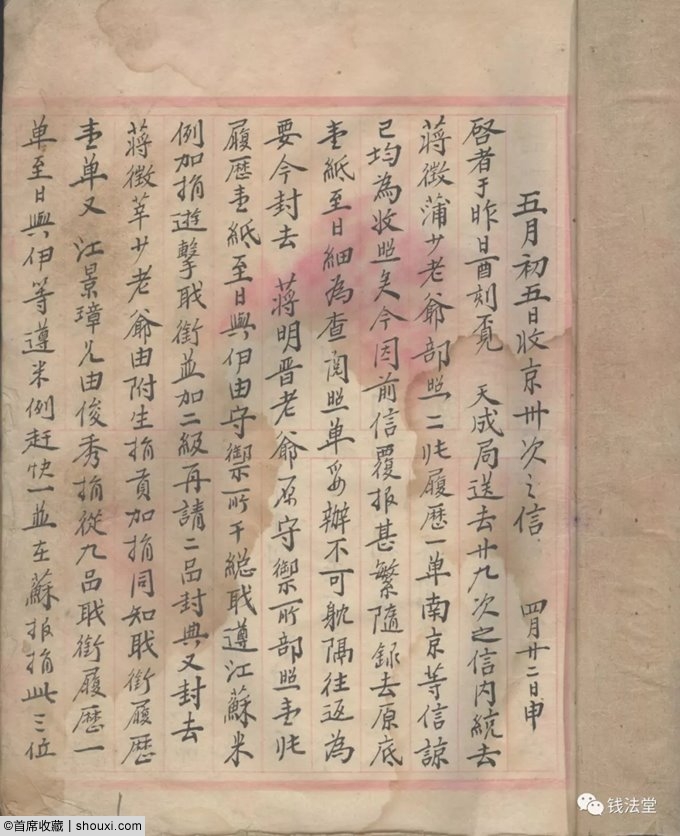 五月初五日收京卅次之信 四月廿二日申
啓者于昨日酉刻覔 天成局送去廿九次之信内統去
蔣徵蒲少老爺部照二㭍履歷一单南京等信諒
已均為收照矣今因前信覆报甚繁隨録去原底
壹紙至日細為查閲照单妥辦不可躭隔往返為
要今封去 蔣明晋老爺原守禦所部照壹㭍
履歷壹紙至日與伊由守禦所千総职遵江蘇米
例加捐遊擊职銜並加二級再請二品封典又封去
蔣徵莘少老爺由附生捐貢加捐同知职銜履歷
壹单又 江景璋兄由俊秀捐從九品职銜履歷一
单至日與伊等遵米例赶快一並在蘇报捐此三位
钱法堂
©首席收藏 | shouxi.com